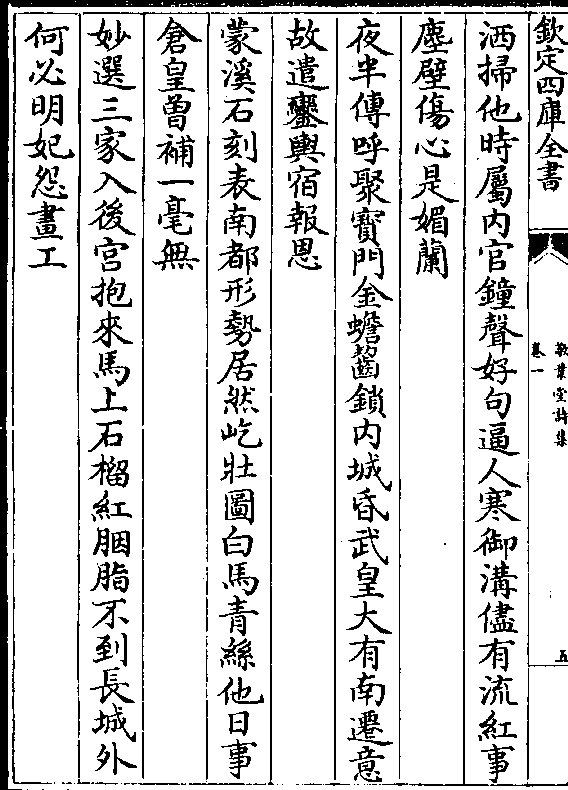 欽定四庫全書
敬業堂詩集
卷一
五
洒掃他時屬内官鐘聲好句逼人寒御溝儘有流紅事
塵壁傷心是媚蘭
夜半傳呼聚寳門金蟾齧鎖内城昏武皇大有南遷意
故遣鑾輿宿報恩
蒙溪石刻表南都形勢居然屹壯圖白馬青絲他日事
倉皇曽補一毫無
妙選三家入後宫抱來馬上石榴紅胭脂不到長城外
何必明妃怨畫工